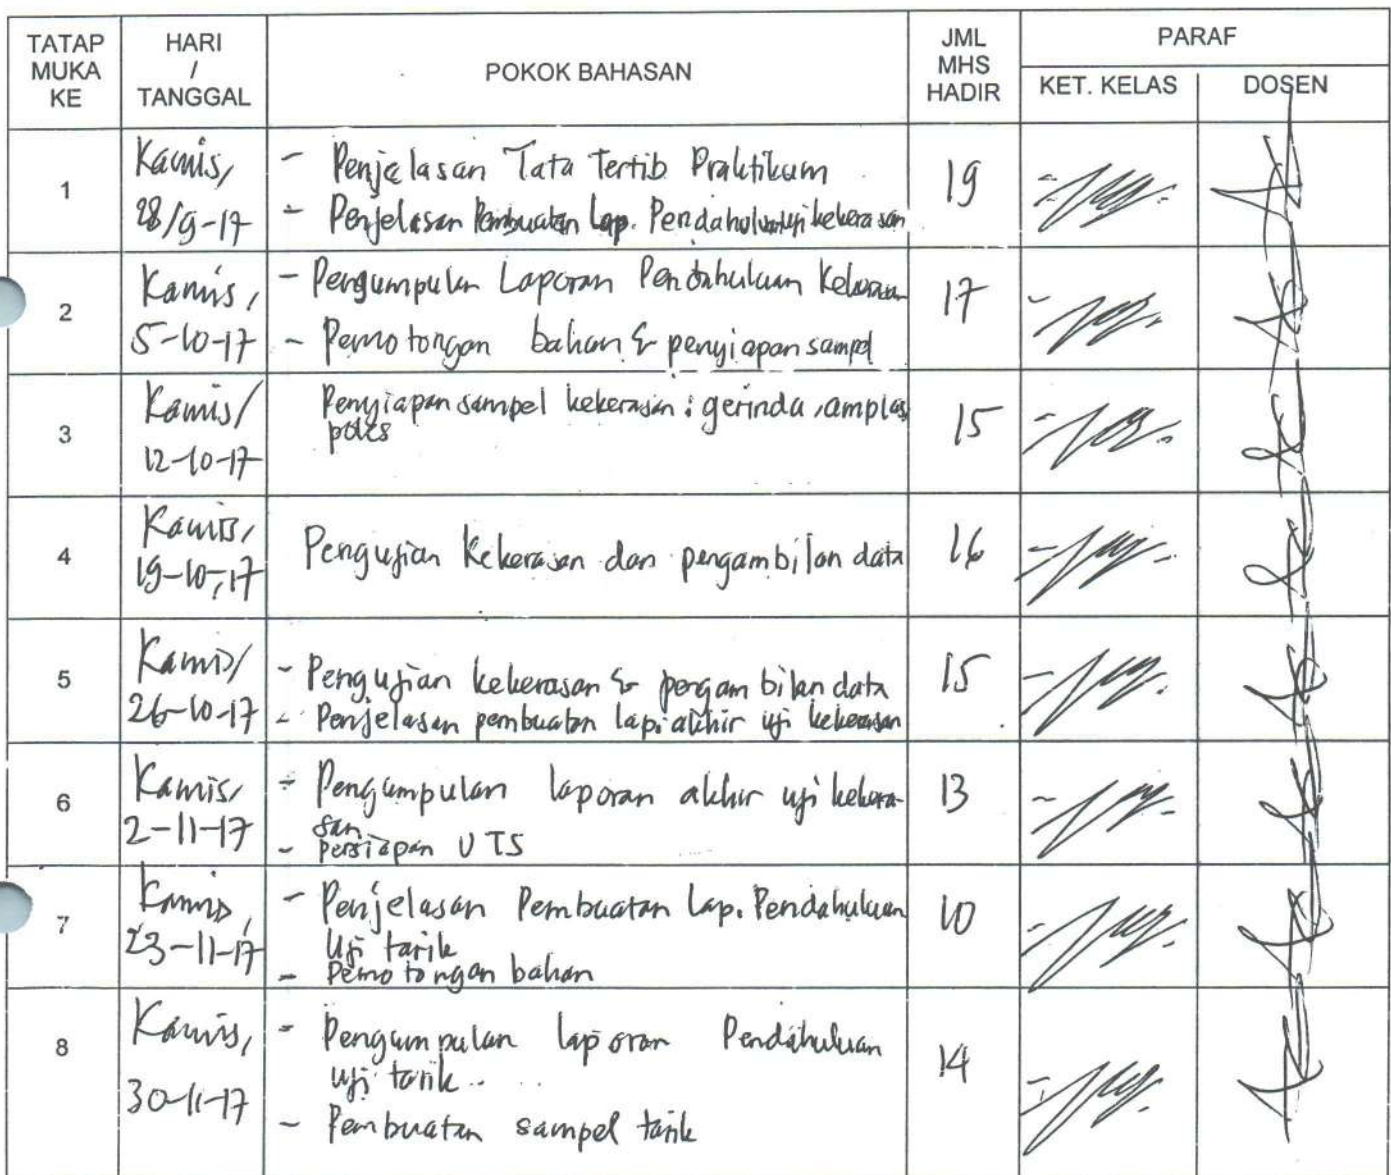 TATAP MUKA KE
HARI / TANGGAL
POKOK BAHASAN
JML MHS HADIR
PARAF
KET. KELAS
DOSEN
1
Kamis,
28/9-17
- Penjelasan Tata Tertib Praktikum
- Penjelasan Pembuatan Lap. Pendahuluan uji kekerasan
19
2
Kamis,
5-10-17
- Pengumpulan Laporan Pendahuluan Kekerasan
- Pemotongan bahan & penyiapan sampel
17
3
Kamis/
12-10-17
Penyiapan sampel kekerasan : gerinda, amplas
poles
15
4
Kamis,
19-10-17
Pengujian Kekerasan dan pengambilan data
16
5
Kamis/
26-10-17
- Pengujian kekerasan & pengambilan data
- Penjelasan pembuatan lap. akhir uji kekerasan
15
6
Kamis,
2-11-17
- Pengumpulan laporan akhir uji kekera-
san
- Persiapan UTS
13
7
Kamis,
23-11-17
- Penjelasan Pembuatan Lap. Pendahuluan
Uji tarik
- Pemotongan bahan
10
8
Kamis,
30-11-17
- Pengumpulan laporan Pendahuluan
uji tarik
- Pembuatan sampel tarik
14